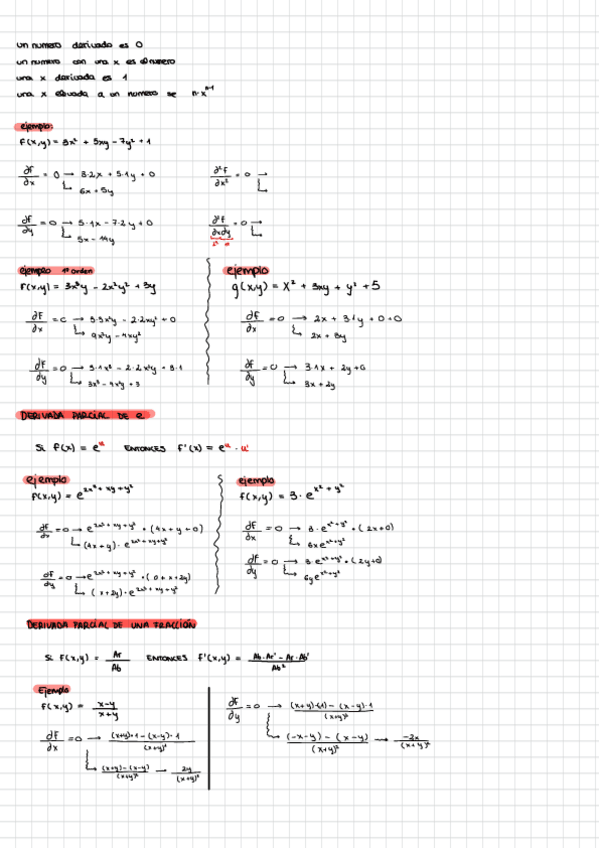 un numero derivado es 0
un numero con una x es el numero
una x derivada es 1
una x elevada a un numero se n·x^n-1
ejemplo:
f(x,y) = 3x² + 5xy - 7y² + 1
∂f/∂x = 0 → 3·2x + 5·1y + 0
↳ 6x + 5y
∂²f/∂x² = 0 →
∂f/∂y = 0 → 5·1x - 7·2y + 0
↳ 5x - 14y
∂²f/∂x∂y = 0 →
ejemplo 1º orden
f(x,y) = 3x³y - 2x²y² + 3y
∂f/∂x = 0 → 3·3x²y - 2·2xy² + 0
↳ 9x²y - 4xy²
∂f/∂y = 0 → 3·1x³ - 2·2x²y + 3·1
↳ 3x³ - 4x²y + 3
ejemplo
g(x,y) = x² + 3xy + y² + 5
∂f/∂x = 0 → 2x + 3·1y + 0 + 0
↳ 2x + 3y
∂f/∂y = 0 → 3·1x + 2y + 0
↳ 3x + 2y
DERIVADA PARCIAL DE e
Si f(x) = e^u ENTONCES f'(x) = e^u · u'
ejemplo
f(x,y) = e^2x² + xy + y²
∂f/∂x = 0 → e^2x² + xy + y² · (4x + y + 0)
↳ (4x + y) · e^2x² + xy + y²
∂f/∂y = 0 → e^2x² + xy + y² · (0 + x + 2y)
↳ (x + 2y) · e^2x² + xy + y²
ejemplo
f(x,y) = 3 · e^x² + y²
∂f/∂x = 0 → 3 · e^x² + y² · (2x + 0)
↳ 6x e^x² + y²
∂f/∂y = 0 → 3 · e^x² + y² · (2y + 0)
↳ 6y e^x² + y²
DERIVADA PARCIAL DE UNA FRACCIÓN
Si f(x,y) = Ar/Ab ENTONCES f'(x,y) = Ab·Ar' - Ar·Ab'/Ab²
Ejemplo
f(x,y) = x-y/x+y
∂f/∂x = 0 → (x+y)·1 - (x-y)·1/(x+y)²
↳ (x+y) - (x-y)/(x+y)² → 2y/(x+y)²
∂f/∂y = 0 → (x+y)·(-1) - (x-y)·1/(x+y)²
↳ (-x-y) - (x-y)/(x+y)² → -2x/(x+y)²